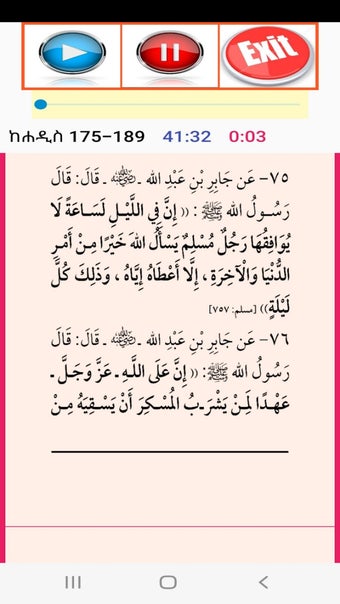 Exit
ከሐዲስ 175–189 41:32 0:03
٧٥- عَن جَابِرِ بْنِ عَبْدِ الله ـ رضي الله عنه ـ قَالَ: قَالَ
رَسُـولُ الله ﷺ: ((إِنَّ فِي اللَّيْـلِ لَسَـاعَةً لَا
يُوَافِقُهَا رَجُلٌ مُسْلِمٌ يَسْأَلُ اللهَ خَيْرًا مِنْ أَمْرِ
الدُّنْيَا وَالْآخِرَةِ، إِلَّا أَعْطَاهُ إِيَّاهُ ، وَذَلِكَ كُلَّ
لَيْلَةٍ)) [مسلم: ٧٥٧]
٧٦- عَن جَابِرِ بْنِ عَبْدِ الله ـ رضي الله عنه ـ قَالَ: قَالَ
رَسُـولُ الله ﷺ: ((إِنَّ عَلَى اللَّـهِ ـ عَزَّ وَجَـلَّ ـ
عَهْـدًا لِمَـنْ يَشْـرَبُ المُسْـكِرَ أَنْ يَسْـقِيَهُ مِـنْ